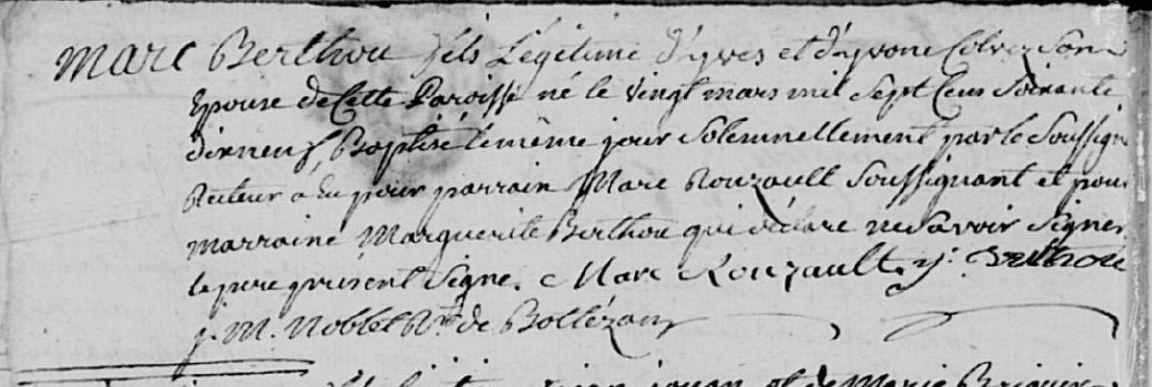 Marc Berthou fils Légitime d'yves et d'yvone son
Epouse de Cette Paroisse né le vingt mars mil Sept Cens Soixante
dixneuf, Baptisé le même jour Solemnellement par le Soussigné
Recteur a Eu pour parrain Marc Rouzault Soussignant et pour
marraine Marguerite Berthou qui déclare ne Savoir Signer
le pere present Signe. Marc Rouzault. y: Berthou
j. M. Noblet Rr de
et de Marie